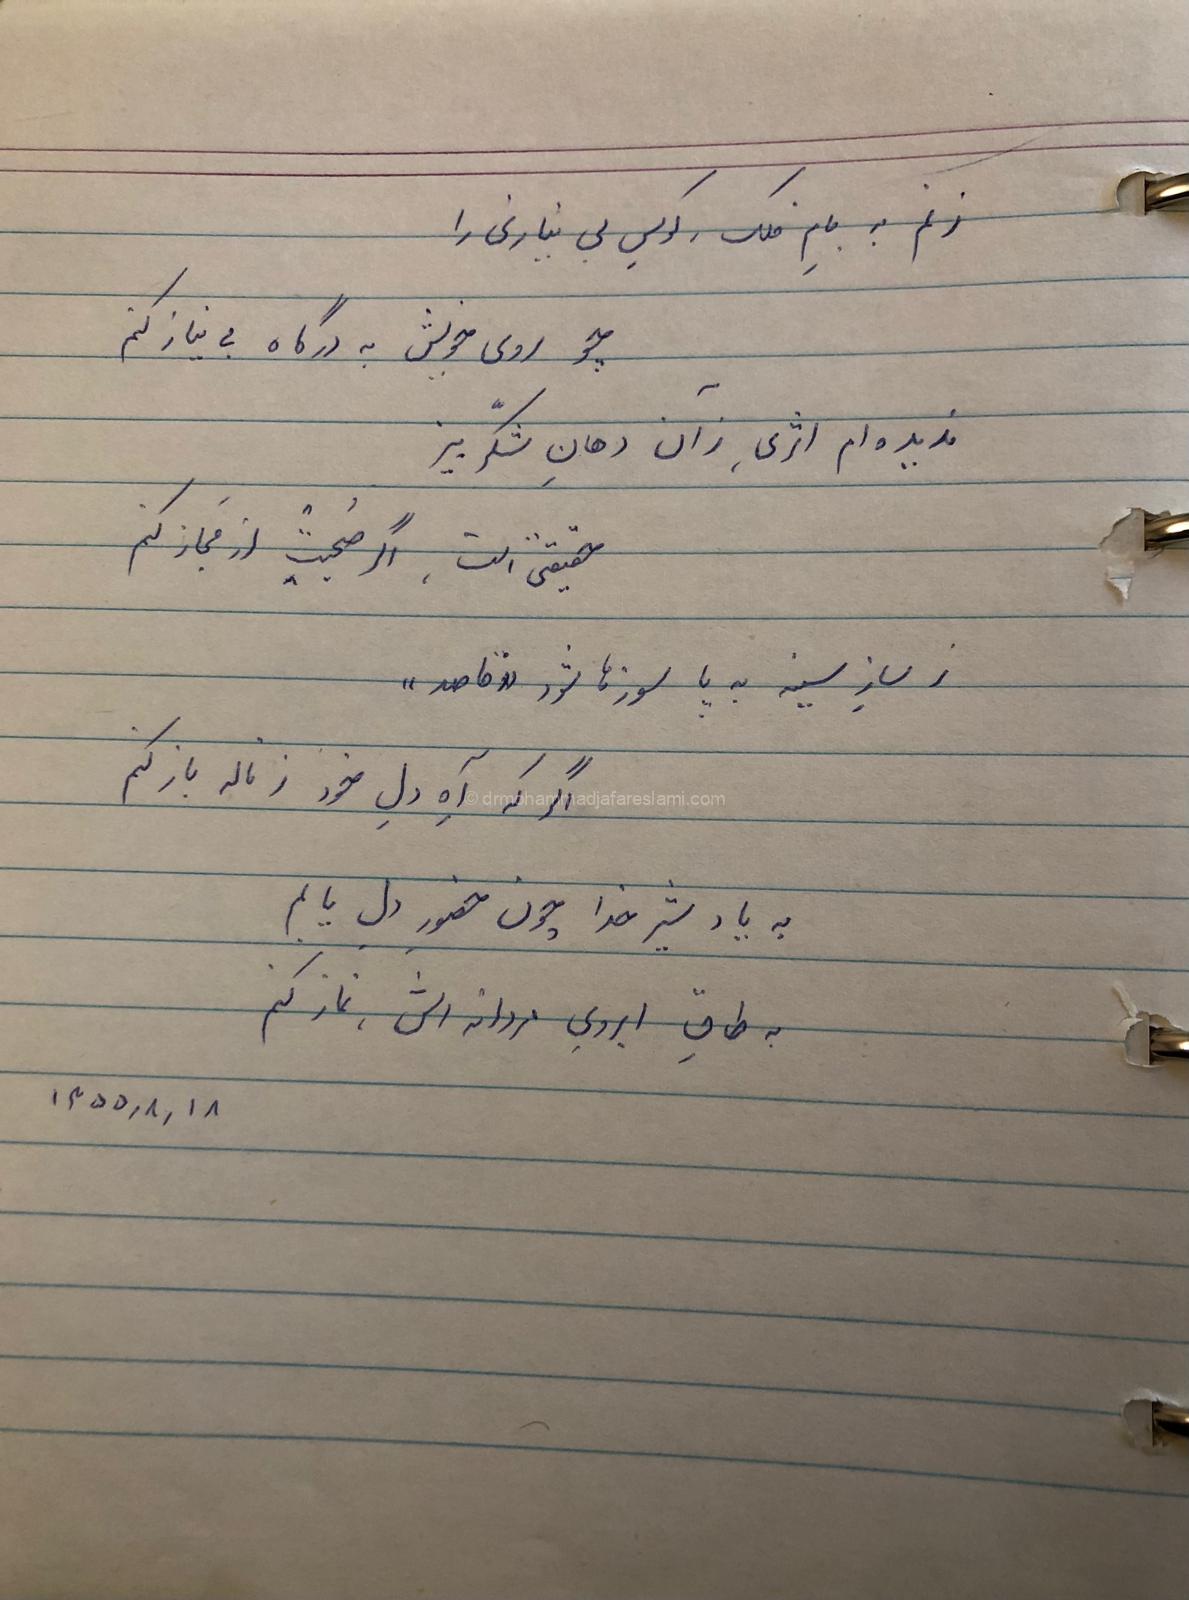 زنم به بامِ فلک، کوسِ بی نیازی را
چو روی خویش به درگاه بی نیاز کنم
ندیده ام اثری، زآن دهانِ شکّر بیز
حقیقتی است، اگر صُحبت از مَجاز کنم
ز سازِ سینه به پا سوزها شود «قاصد»
اگر که آهِ دلِ خود ز ناله باز کنم
© drmohammadjafareslami.com
به یاد شیر خدا چون حضورِ دلِ یابم
به طاقِ ابروی مردانه اش، نماز کنم
۱۴۰۰،۸،۱۸